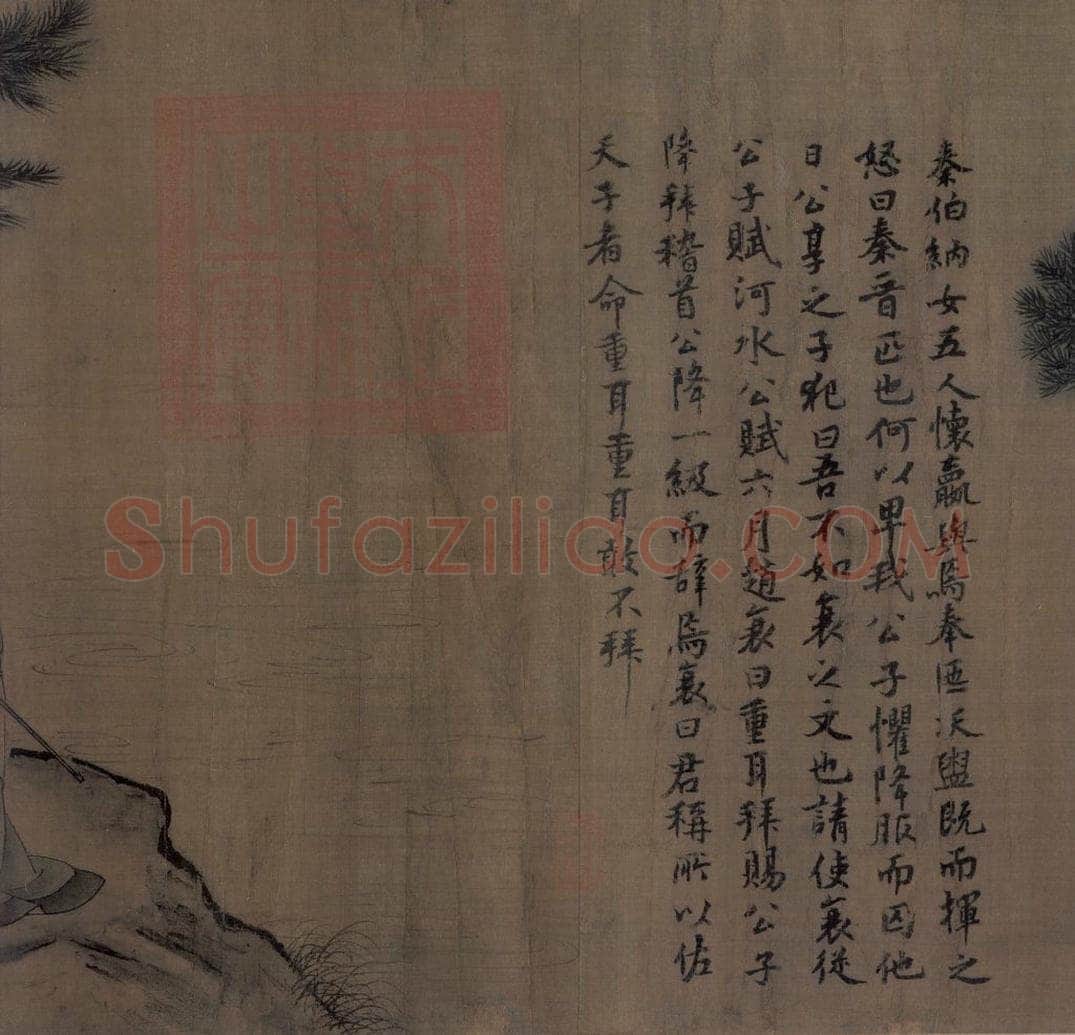 秦伯納女五人懷嬴與焉奉匜沃盥既而揮之
怒曰秦晉匹也何以卑我公子懼降服而囚他
日公享之子犯曰吾不如衰之文也請使衰從
公子賦河水公賦六月趙衰曰重耳拜賜公子
降拜稽首公降一級而辭焉衰曰君稱所以佐
天子者命重耳重耳敢不拜
Shufazilido.COM